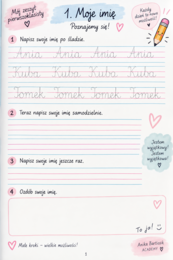 Mój zeszyt
pierwszoklasisty
1. Moje imię
Poznajemy się!
1 Napisz swoje imię po śladzie.
Ania Ania Ania Ania
Kuba Kuba Kuba Kuba
Tomek Tomek Tomek Tomek
2 Teraz napisz swoje imię samodzielnie.
3 Napisz swoje imię jeszcze raz.
Jestem
wyjątkowy!
Jestem
wyjątkowa!
4 Ozdób swoje imię.
To ja!
Małe kroki – wielkie możliwości!
1